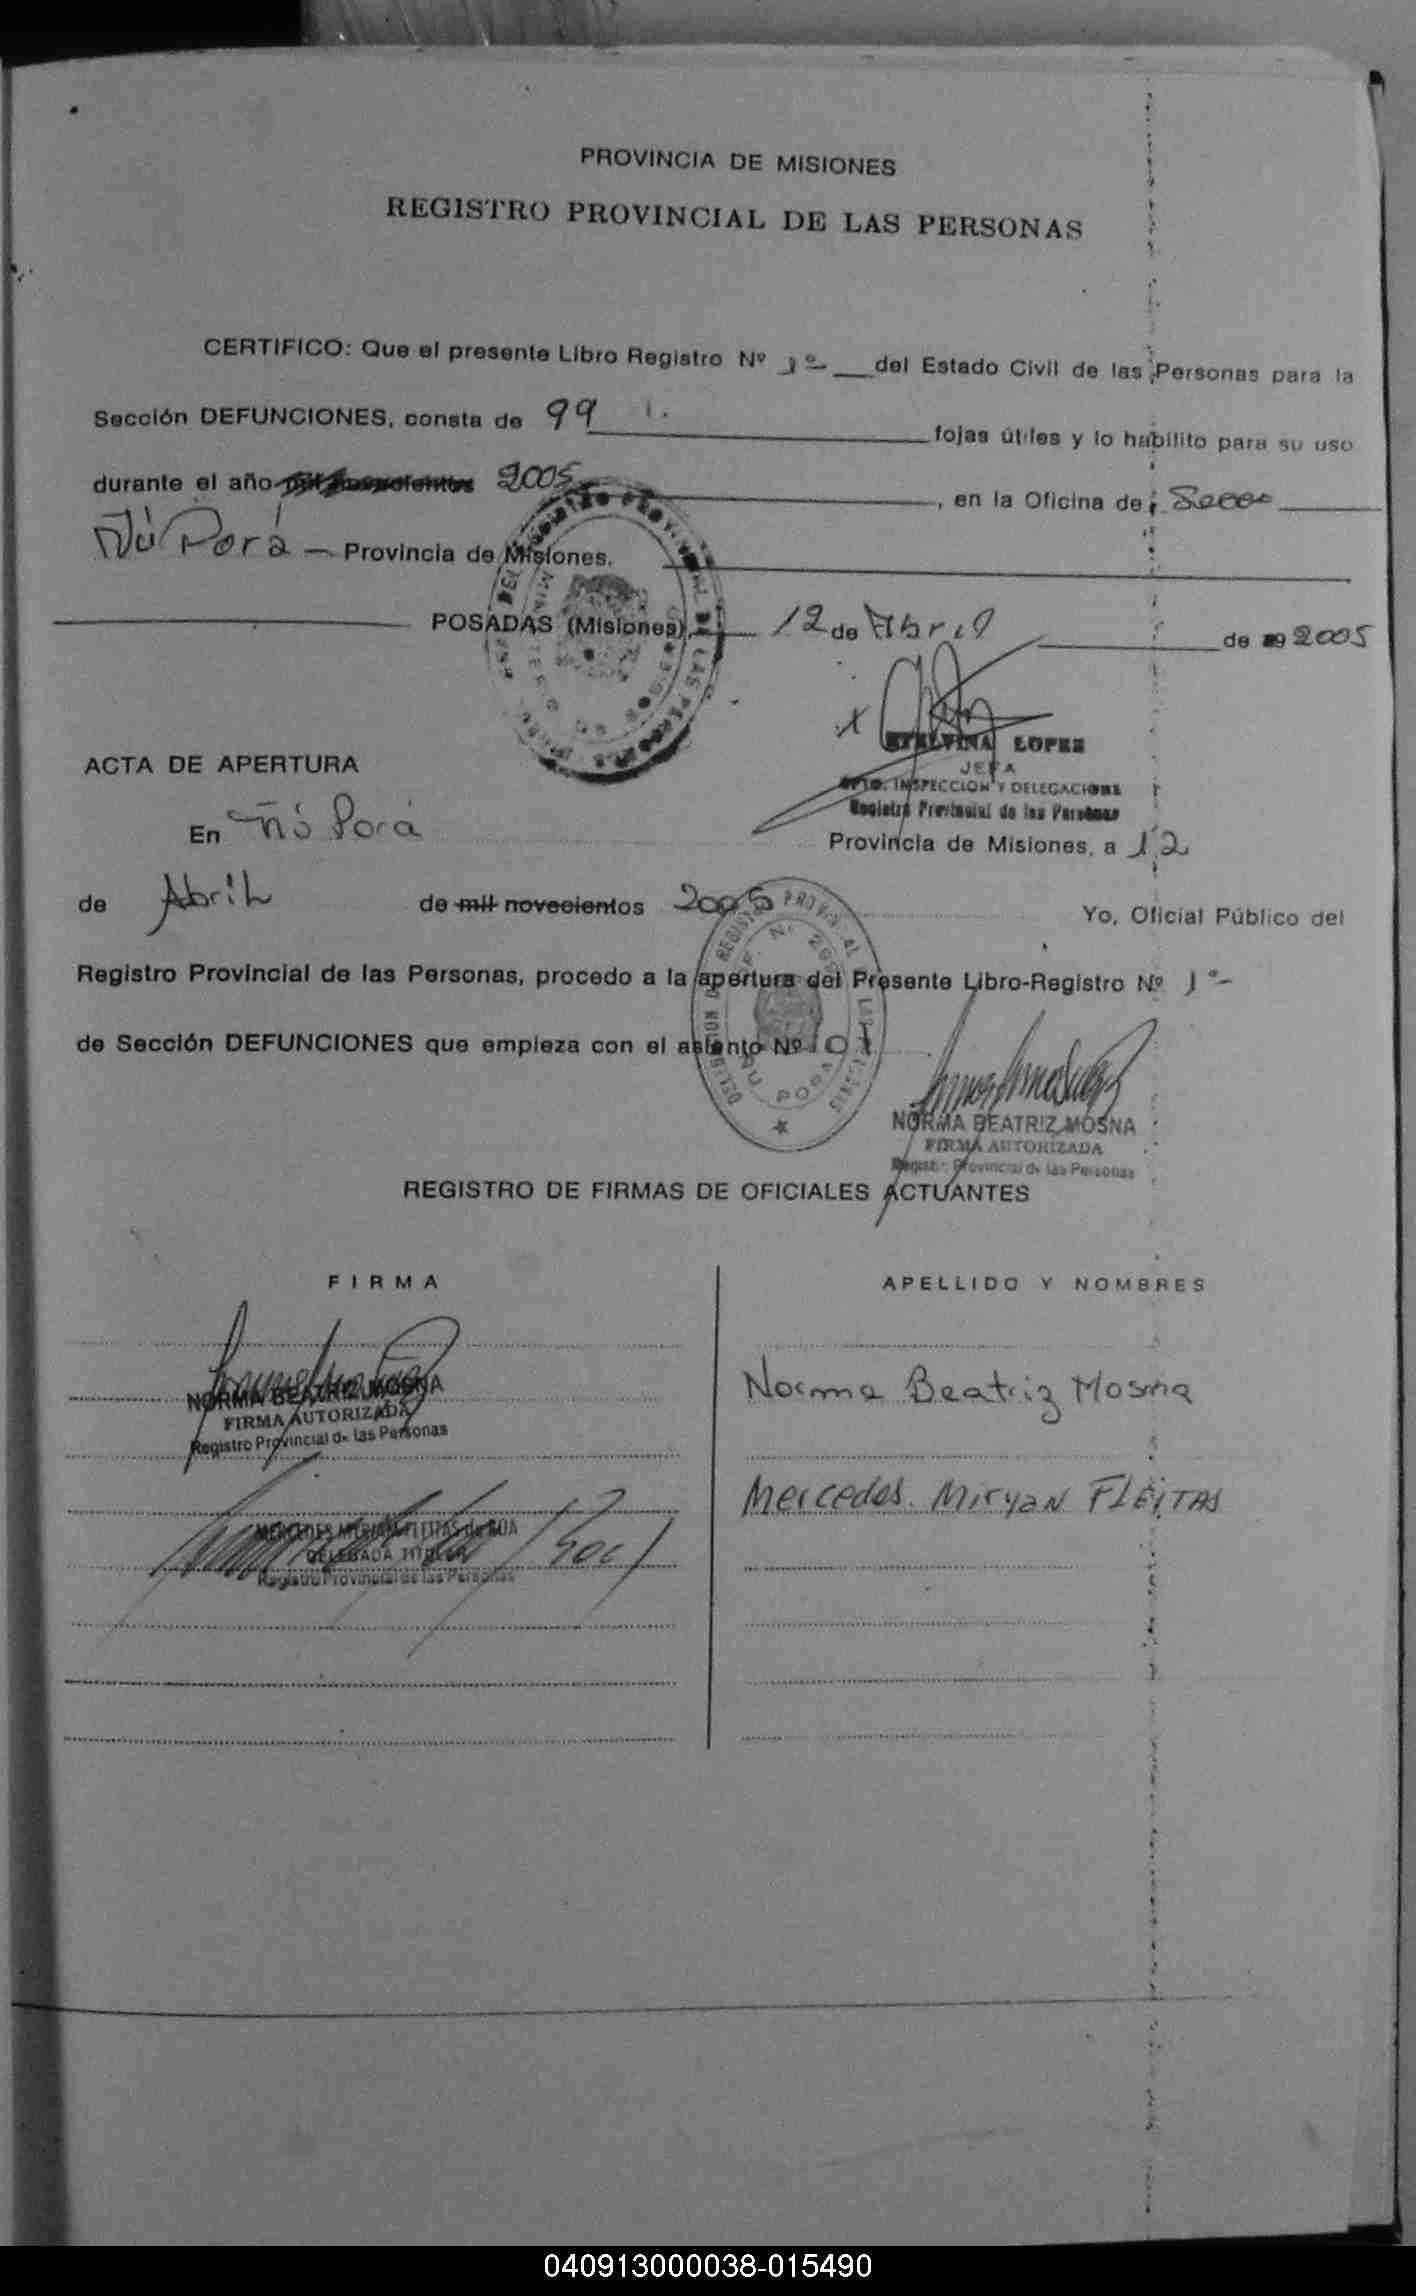 PROVINCIA DE MISIONES
REGISTRO PROVINCIAL DE LAS PERSONAS
CERTIFICO: Que el presente Libro Registro Nº 1º del Estado Civil de las Personas para la
Sección DEFUNCIONES, consta de 99 fojas útiles y lo habilito para su uso
durante el año mil novecientos 2005, en la Oficina de
Ñú Porá — Provincia de Misiones.
POSADAS (Misiones), 12 de Abril de 19 2005
ETELVINA LOPEZ
JEFA
DPTO. INSPECCION Y DELEGACIONES
Registro Provincial de las Personas
ACTA DE APERTURA
En Ñú Porá Provincia de Misiones, a 12
de Abril de mil novecientos 2005 Yo, Oficial Público del
Registro Provincial de las Personas, procedo a la apertura del Presente Libro-Registro Nº 1º-
de Sección DEFUNCIONES que empieza con el asiento Nº 01
NORMA BEATRIZ MOSNA
FIRMA AUTORIZADA
Registro Provincial de las Personas
REGISTRO DE FIRMAS DE OFICIALES ACTUANTES
FIRMA APELLIDO Y NOMBRES
NORMA BEATRIZ MOSNA Norma Beatriz Mosna
FIRMA AUTORIZADA
Registro Provincial de las Personas
Mercedes. Miryan FLEITAS
MERCEDES MIRIAN FLEITAS de
DELEGADA TITULAR
Registro Provincial de las Personas
040913000038-015490